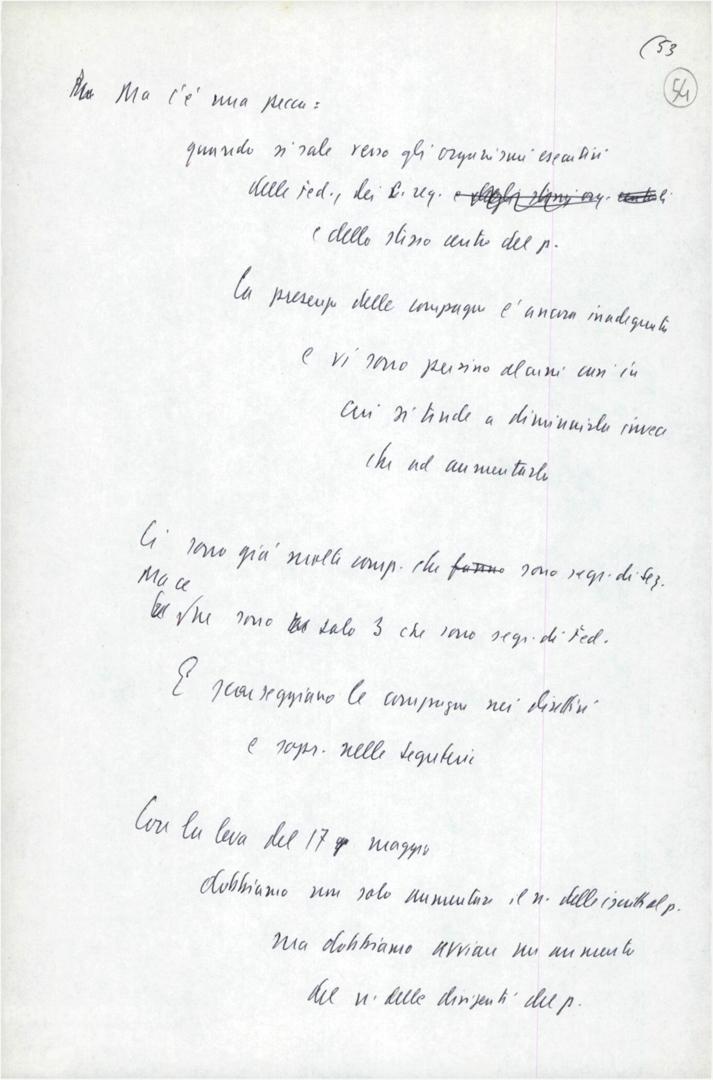 (53
54
Ma Ma c'è una pecca:
quando si sale verso gli organismi esecutivi
delle Fed., dei C. reg. e degli stessi org. centrali
e dello stesso centro del p.
la presenza delle compagne è ancora inadeguata
e vi sono persino alcuni casi in
cui si tende a diminuirla invece
che ad aumentarla
Ci sono già molte comp. che fanno sono segr. di Sez.
Ma ce
ne sono solo 3 che sono segr. di Fed.
E scarseggiano le compagne nei direttivi
e sopr. nelle Segreterie
Con la leva del 17 maggio
dobbiamo non solo aumentare il n. delle iscritte al p.
ma dobbiamo avviare un aumento
del n. delle dirigenti del p.